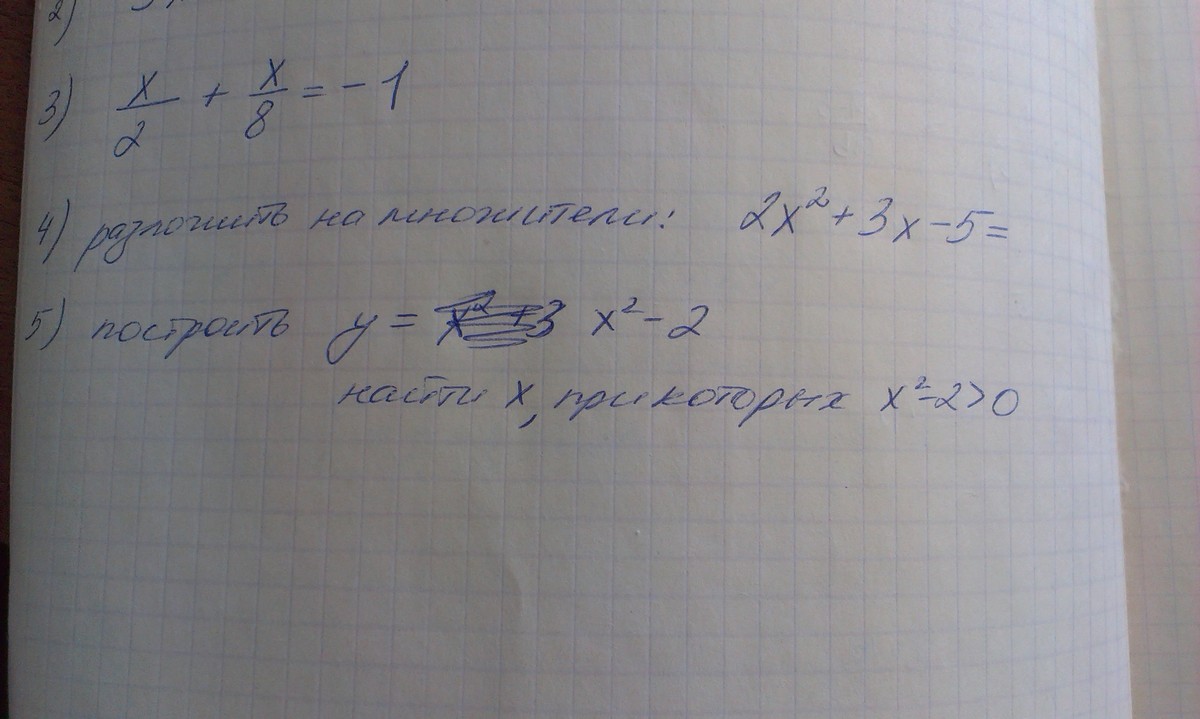 2)
3) x/2 + x/8 = -1
4) разложить на множители: 2x² + 3x - 5 =
5) построить y = x² - 2
найти x, при которых x² - 2 > 0